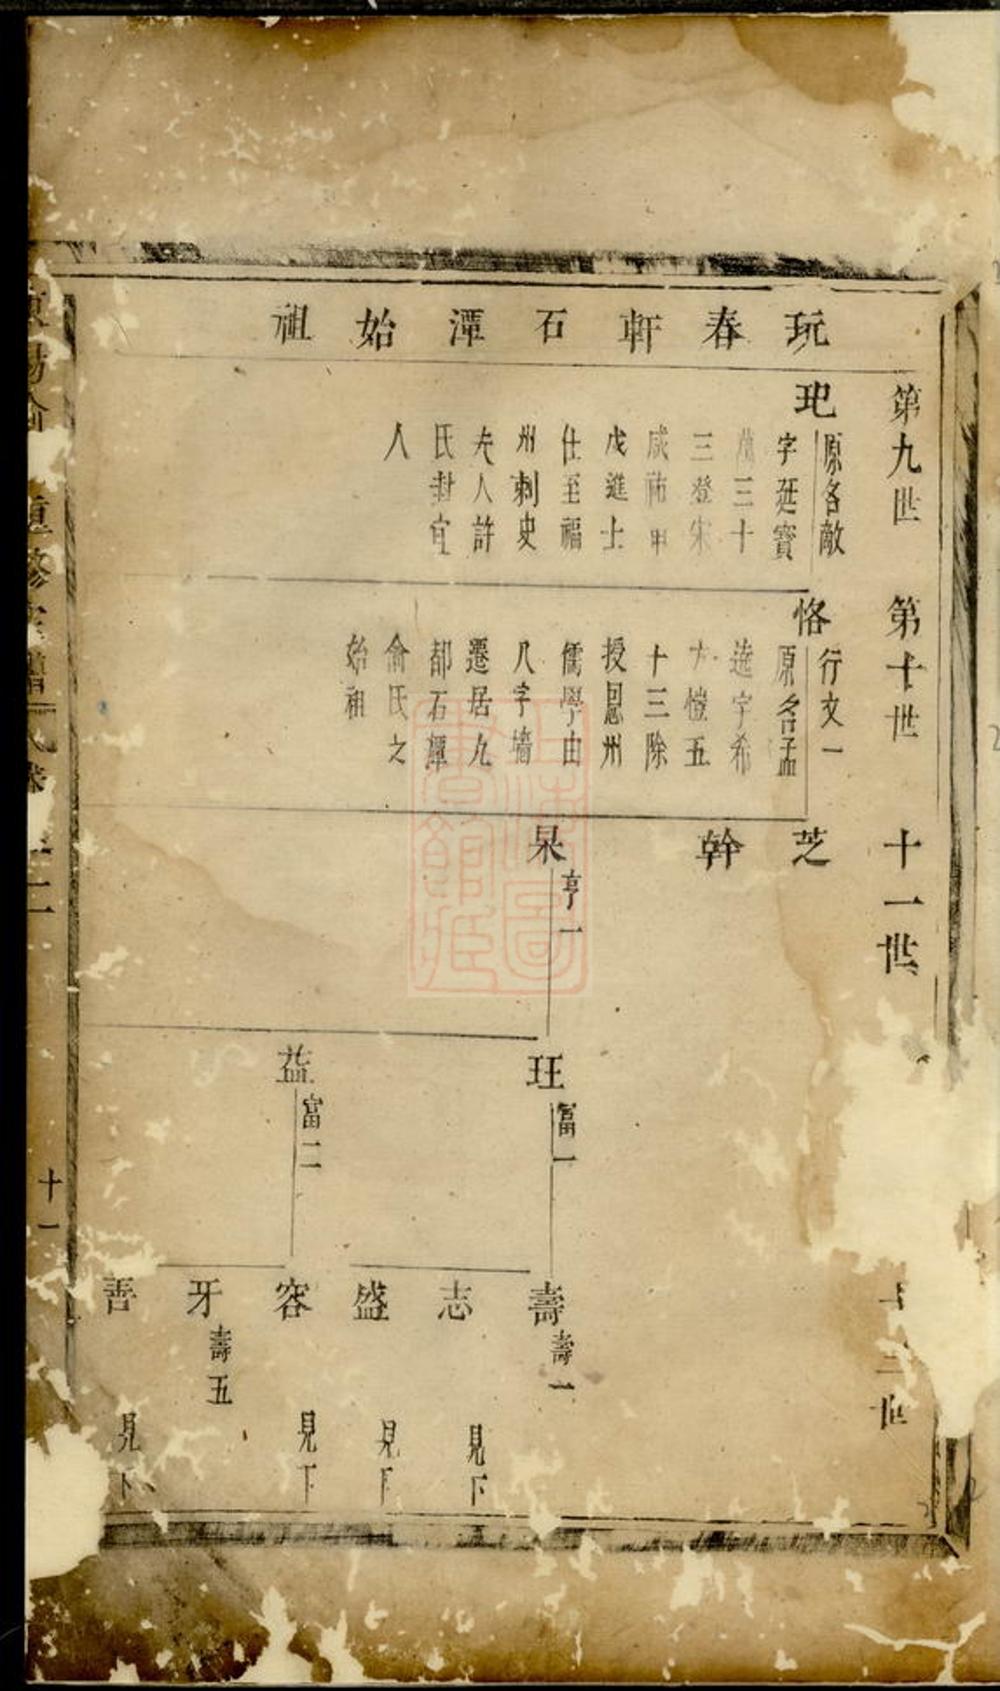 玩春軒石潭始祖
第九世
玘
原名敵
字延寶
三十
三登宋
咸祐甲
戊進士
仕至福
州刺史
夫人許
氏封宜
人
第十世
恪
行文一
原名孟
逵字希
方愷五
十三除
授恩州
儒學由
八字墻
遷居九
都石潭
俞氏之
始祖
十一世
芝
幹
杲
亨一
玨
富一
益
富二
十三世
壽
壽一
志
見下
盛
見下
容
見下
牙
壽五
善
見下
重修宗譜
卷
十一